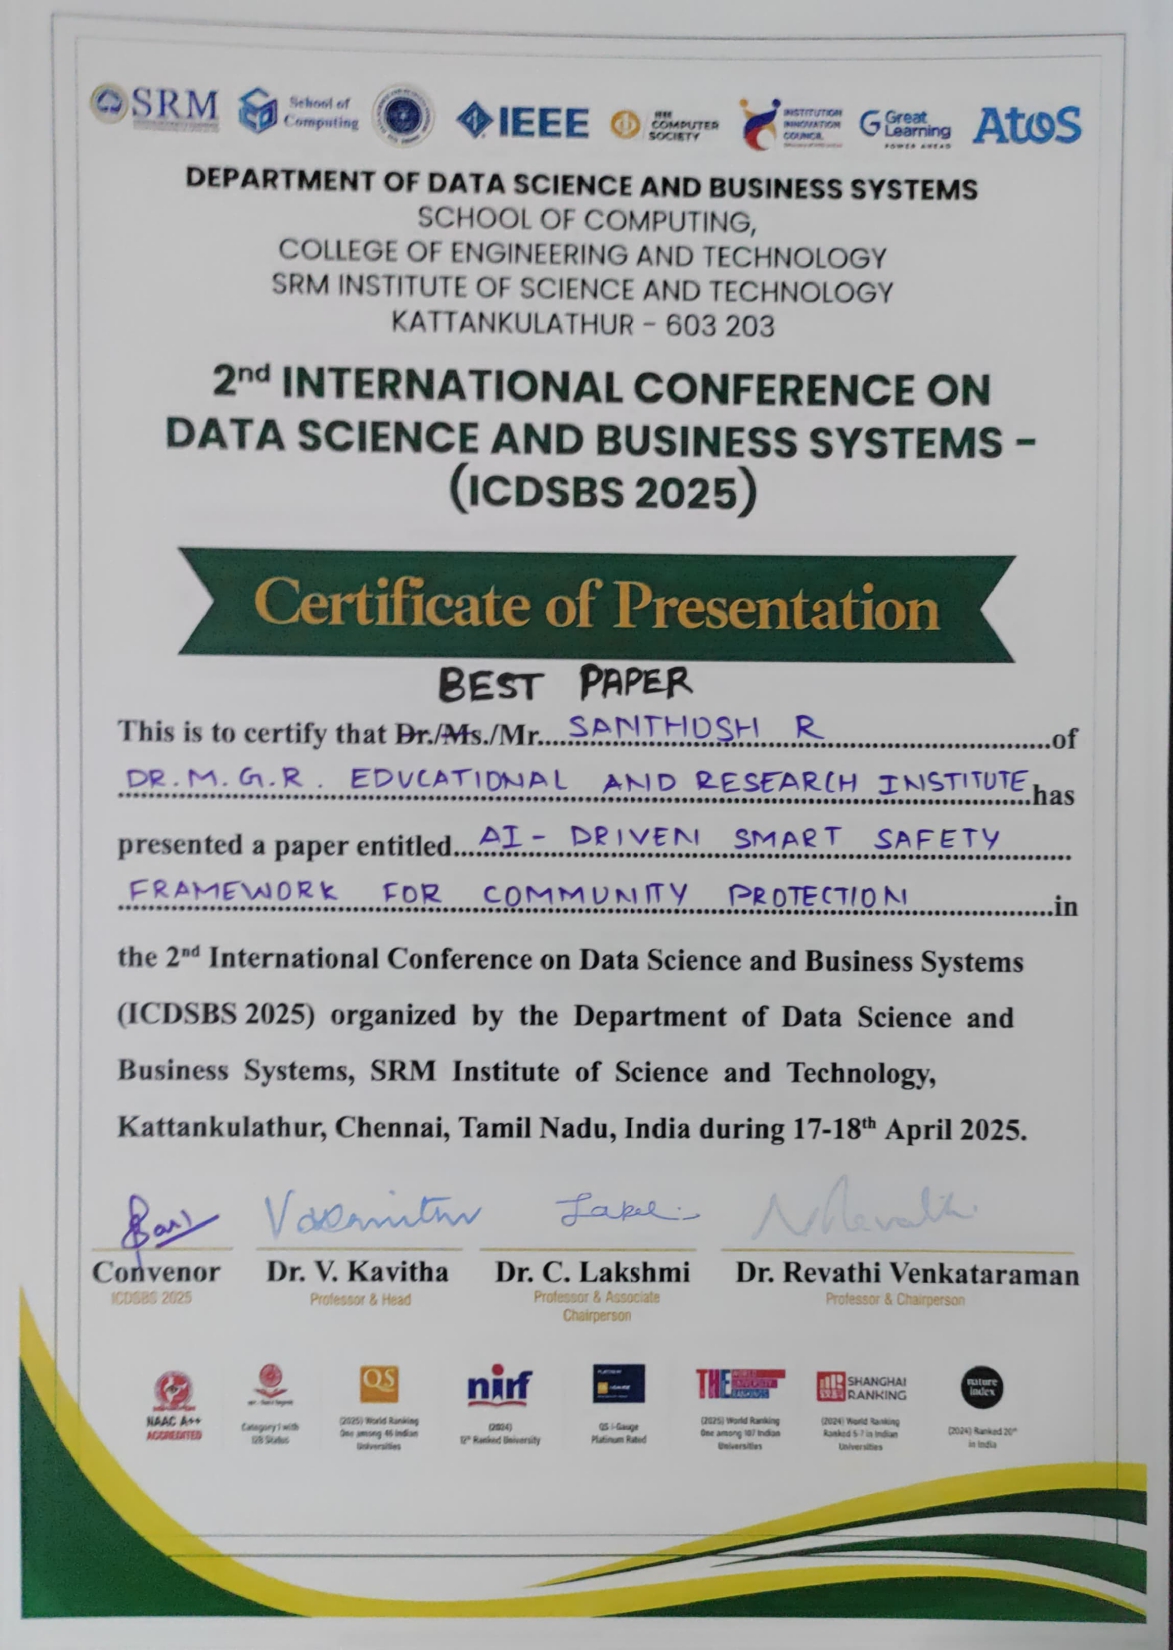 SRM
School of
Computing
IEEE
IEEE
COMPUTER
SOCIETY
INSTITUTION
INNOVATION
COUNCIL
Great
Learning
POWER AHEAD
Atos
DEPARTMENT OF DATA SCIENCE AND BUSINESS SYSTEMS
SCHOOL OF COMPUTING,
COLLEGE OF ENGINEERING AND TECHNOLOGY
SRM INSTITUTE OF SCIENCE AND TECHNOLOGY
KATTANKULATHUR - 603 203
2nd INTERNATIONAL CONFERENCE ON
DATA SCIENCE AND BUSINESS SYSTEMS -
(ICDSBS 2025)
Certificate of Presentation
BEST PAPER
This is to certify that Dr./Ms./Mr....SANTHOSH R...of
DR. M. G. R. EDUCATIONAL AND RESEARCH INSTITUTE has
presented a paper entitled...AI - DRIVEN SMART SAFETY
FRAMEWORK FOR COMMUNITY PROTECTION...in
the 2nd International Conference on Data Science and Business Systems
(ICDSBS 2025) organized by the Department of Data Science and
Business Systems, SRM Institute of Science and Technology,
Kattankulathur, Chennai, Tamil Nadu, India during 17-18th April 2025.
Convenor
ICDSBS 2025
Dr. V. Kavitha
Professor & Head
Dr. C. Lakshmi
Professor & Associate
Chairperson
Dr. Revathi Venkataraman
Professor & Chairperson
NAAC A++
ACCREDITED
Category I with
12B Status
QS
(2025) World Ranking
One among 46 Indian
Universities
nirf
(2024)
12th Ranked University
QS I-Gauge
Platinum Rated
THE WORLD
UNIVERSITY
RANKINGS
(2025) World Ranking
One among 107 Indian
Universities
SHANGHAI
RANKING
(2024) World Ranking
Ranked 5-7 in Indian
Universities
nature
index
(2024) Ranked 20th
in India